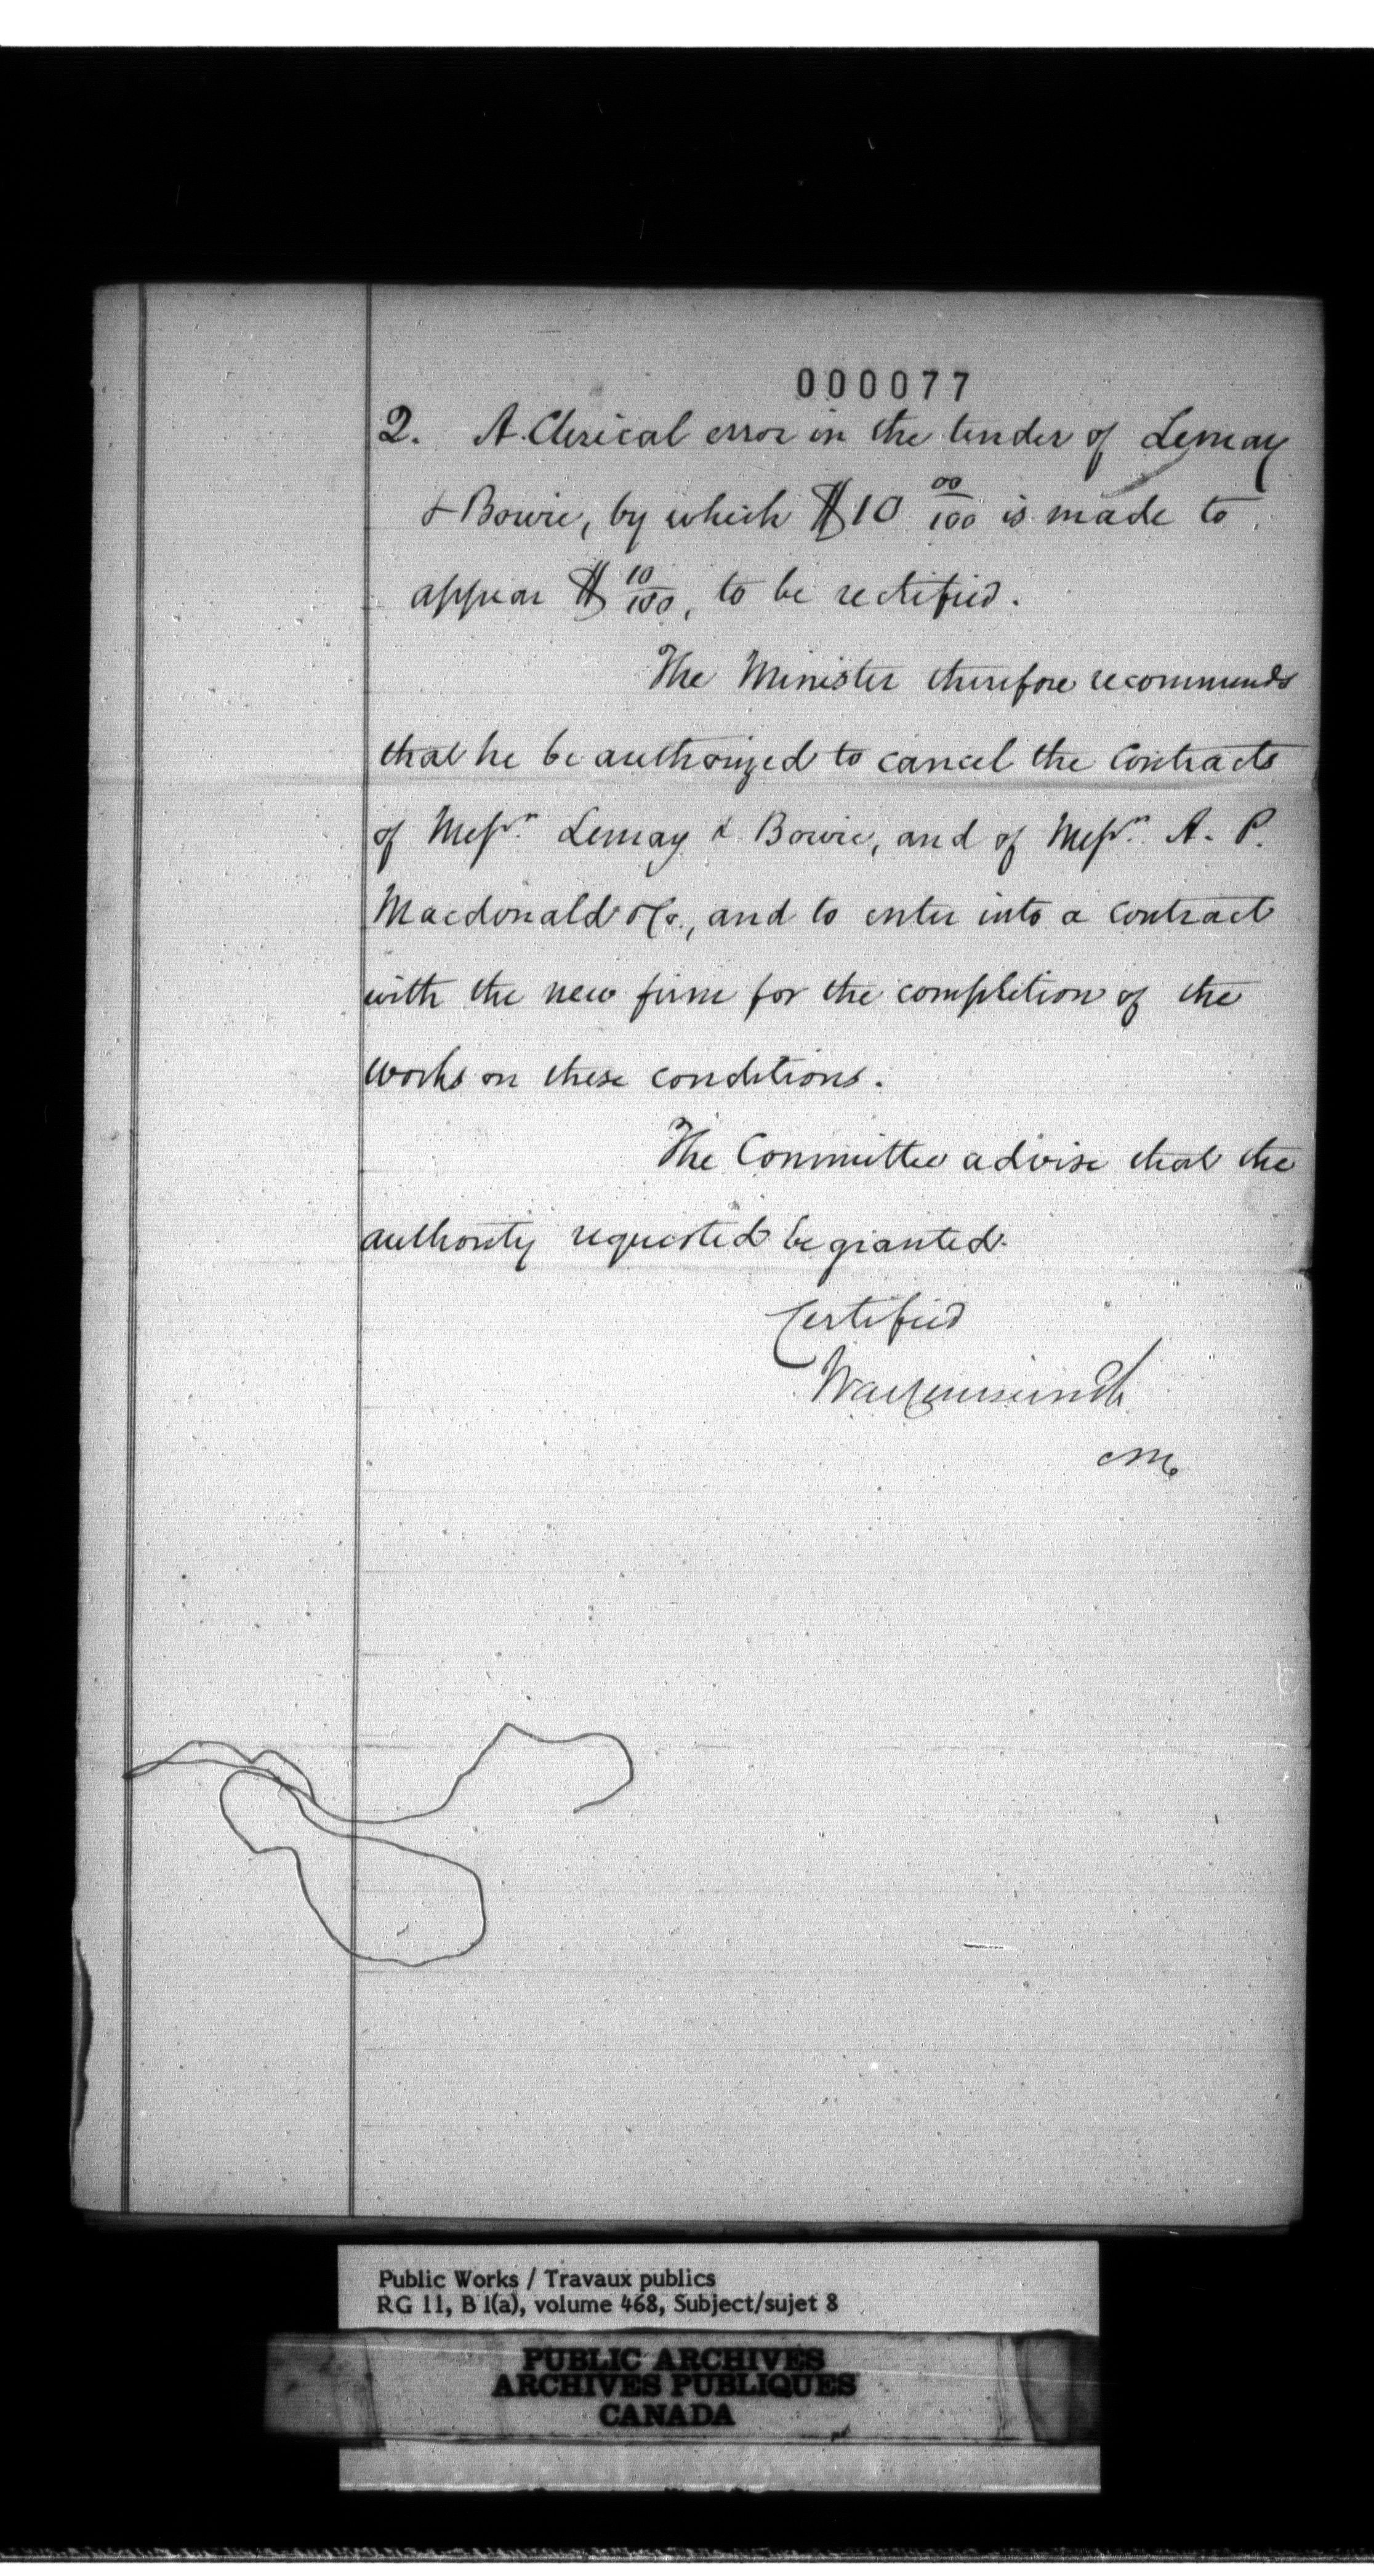 000077
2. A Clerical error in the tender of Lemay
& Bowie, by which $10 00/100 is made to
appear $ 10/100, to be rectified.
The Minister therefore recommends
that he be authorized to cancel the Contracts
of Messrs. Lemay & Bowie, and of Messrs. A. P.
Macdonald & Co., and to enter into a contract
with the new firm for the completion of the
works on these conditions.
The Committee advise that the
authority requested be granted.
Certified
Public Works / Travaux publics
RG 11, B 1(a), volume 468, Subject/sujet 8
PUBLIC ARCHIVES
ARCHIVES PUBLIQUES
CANADA